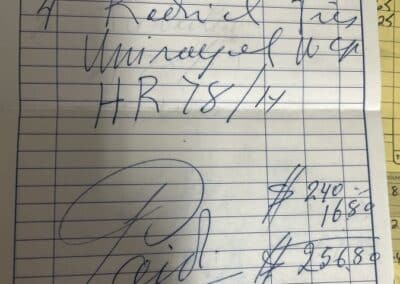 4 Radial Tires
Uniroyal W
HR 78/14
$ 240 -
16 80
Paid $ 256 80